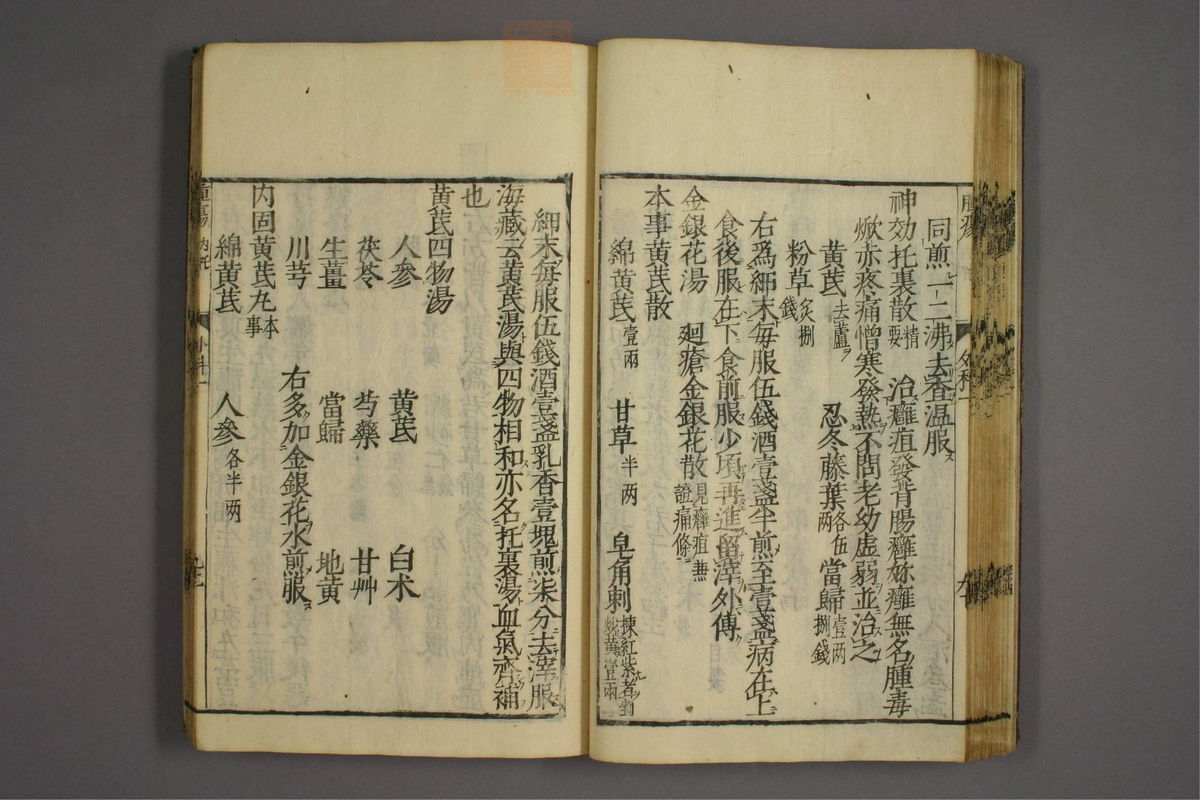 同煎一二沸去渣温服
神効托裏散精要 治癰疽發背腸癰妳癰無名腫毒
焮赤疼痛憎寒發熱不問老幼虚弱並治之
黄茋去蘆 忍冬藤葉各伍两 當歸壹两捌錢
粉草炙捌錢
右爲細末毎服伍錢酒壹盞半煎至壹盞病在上
食後服在下食前服少頃再進留滓外傅
金銀花湯 廻瘡金銀花散見癰疽無證痛條
本事黄茋散
綿黄茋壹兩 甘草半两 皂角刺揀紅紫者剉炒黄壹兩
細末毎服伍錢酒壹盞乳香壹塊煎柒分去滓服
海藏云黄茋湯與四物相和亦名托裏湯血氣齊補
也
黄茋四物湯
人參 黄茋 白朮
茯苓 芍藥 甘艸
生薑 當歸 地黄
川芎 右多加金銀花水煎服
内固黄茋丸本事
綿黄茋 人參各半两